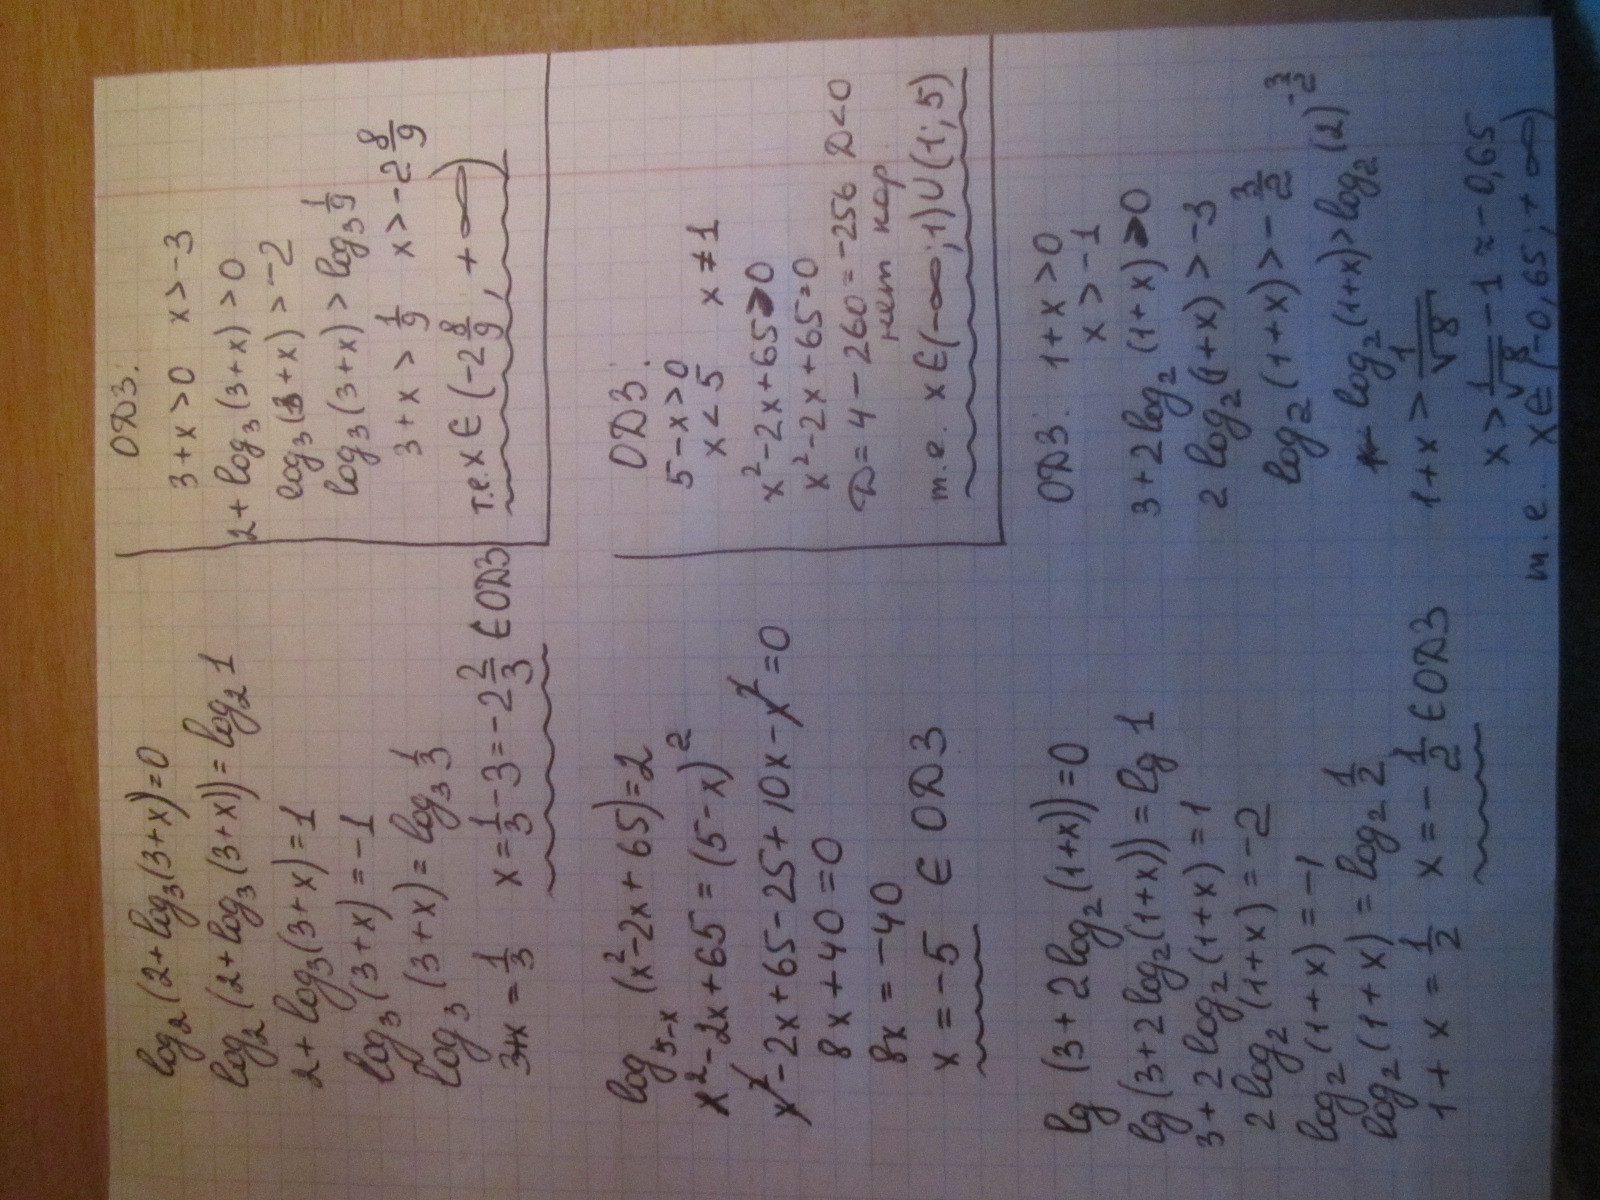 log₂(2+log₃(3+x))=0
log₂(2+log₃(3+x))=log₂1
2+log₃(3+x)=1
log₃(3+x)=-1
log₃(3+x)=log₃ 1/3
3+x=1/3 x=1/3-3=-2 2/3 ∈ ОДЗ
ОДЗ:
3+x>0 x>-3
2+log₃(3+x)>0
log₃(3+x)>-2
log₃(3+x)>log₃ 1/9
3+x>1/9 x>-2 8/9
т.е. x∈(-2 8/9, +∞)
log₅₋ₓ(x²-2x+65)=2
x²-2x+65=(5-x)²
x²-2x+65-25+10x-x²=0
8x+40=0
8x=-40
x=-5 ∈ ОДЗ
ОДЗ:
5-x>0
x<5 x≠1
x²-2x+65>0
x²-2x+65=0
D=4-260=-256 D<0
нет кор.
т.е. x∈(-∞;1)∪(1;5)
lg(3+2log₂(1+x))=0
lg(3+2log₂(1+x))=lg1
3+2log₂(1+x)=1
2log₂(1+x)=-2
log₂(1+x)=-1
log₂(1+x)=log₂ 1/2
1+x=1/2 x=-1/2 ∈ ОДЗ
ОДЗ: 1+x>0
x>-1
3+2log₂(1+x)>0
2log₂(1+x)>-3
log₂(1+x)>-3/2
log₂(1+x)>log₂(2)^(-3/2)
1+x>1/√8
x>1/√8-1≈-0,65
т.е. x∈(-0,65;+∞)